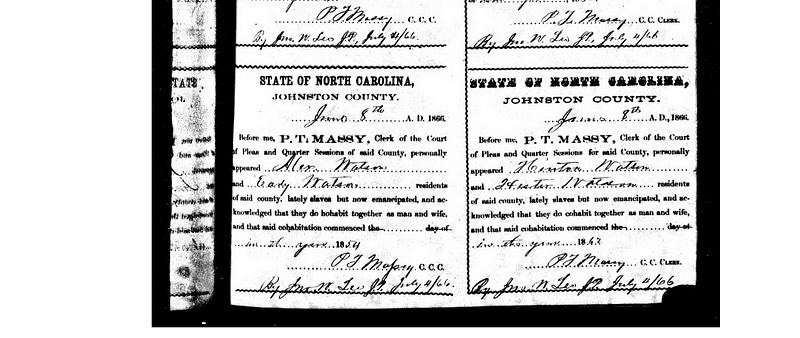 P T Massy C. C. C.
By Jno. W. Leo J.P. July 4/66.
STATE OF NORTH CAROLINA,
JOHNSTON COUNTY.
June 8th A. D. 1866.
Before me, P. T. MASSY, Clerk of the Court
of Pleas and Quarter Sessions of said County, personally
appeared Alex Watson
and Eady Watson residents
of said county, lately slaves but now emancipated, and ac-
knowledged that they do hohabit together as man and wife,
and that said cohabitation commenced the day of
in the year 1854
P T Massy C. C. C.
By Jno. W. Leo J.P. July 4/66.
P. T. Massy C. C. CLERK.
By Jno. W. Leo J.P. July 4/66
STATE OF NORTH CAROLINA,
JOHNSTON COUNTY.
June 8th A. D., 1866.
Before me, P. T. MASSY, Clerk of the Court
of Pleas and Quarter Sessions for said County, personally
appeared Hinton Watson
and Hester Watson residents
of said county, lately slaves but now emancipated, and ac-
knowledged that they do cohabit together as man and wife,
and that said cohabitation commenced the day of
in the year 1862
P T Massy C. C. CLERK.
By Jno. W. Leo J.P. July 4/66